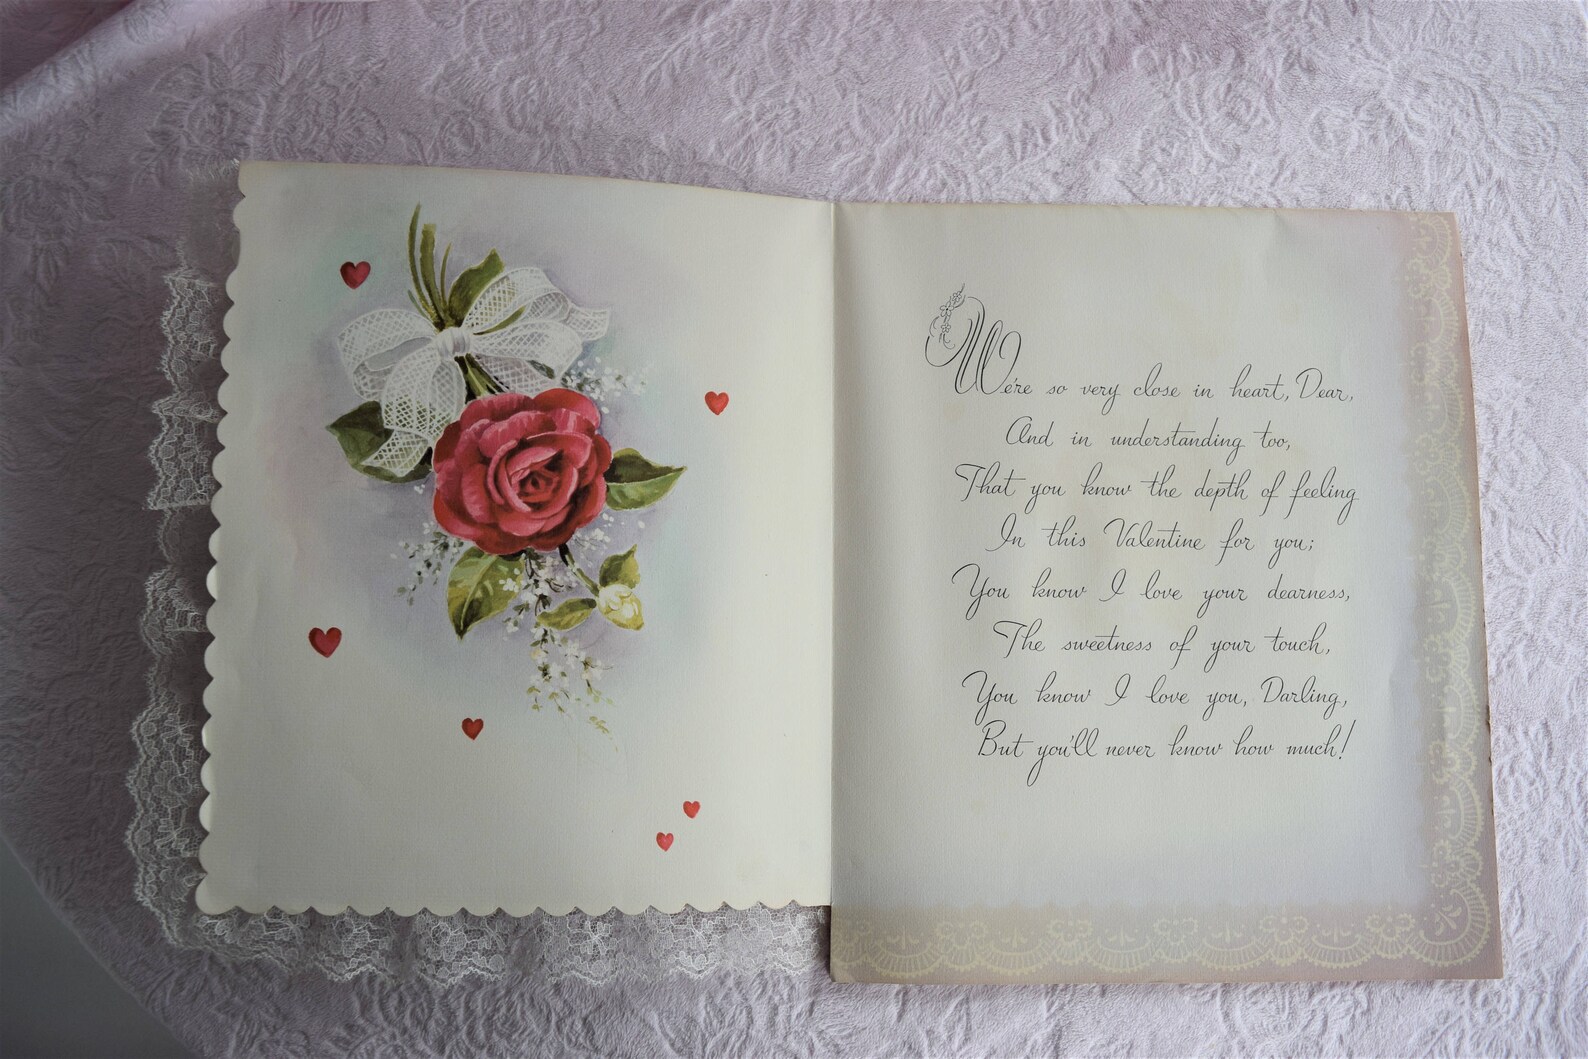 We're so very close in heart, Dear,
And in understanding too,
That you know the depth of feeling
In this Valentine for you;
You know I love your dearness,
The sweetness of your touch,
You know I love you, Darling,
But you'll never know how much!